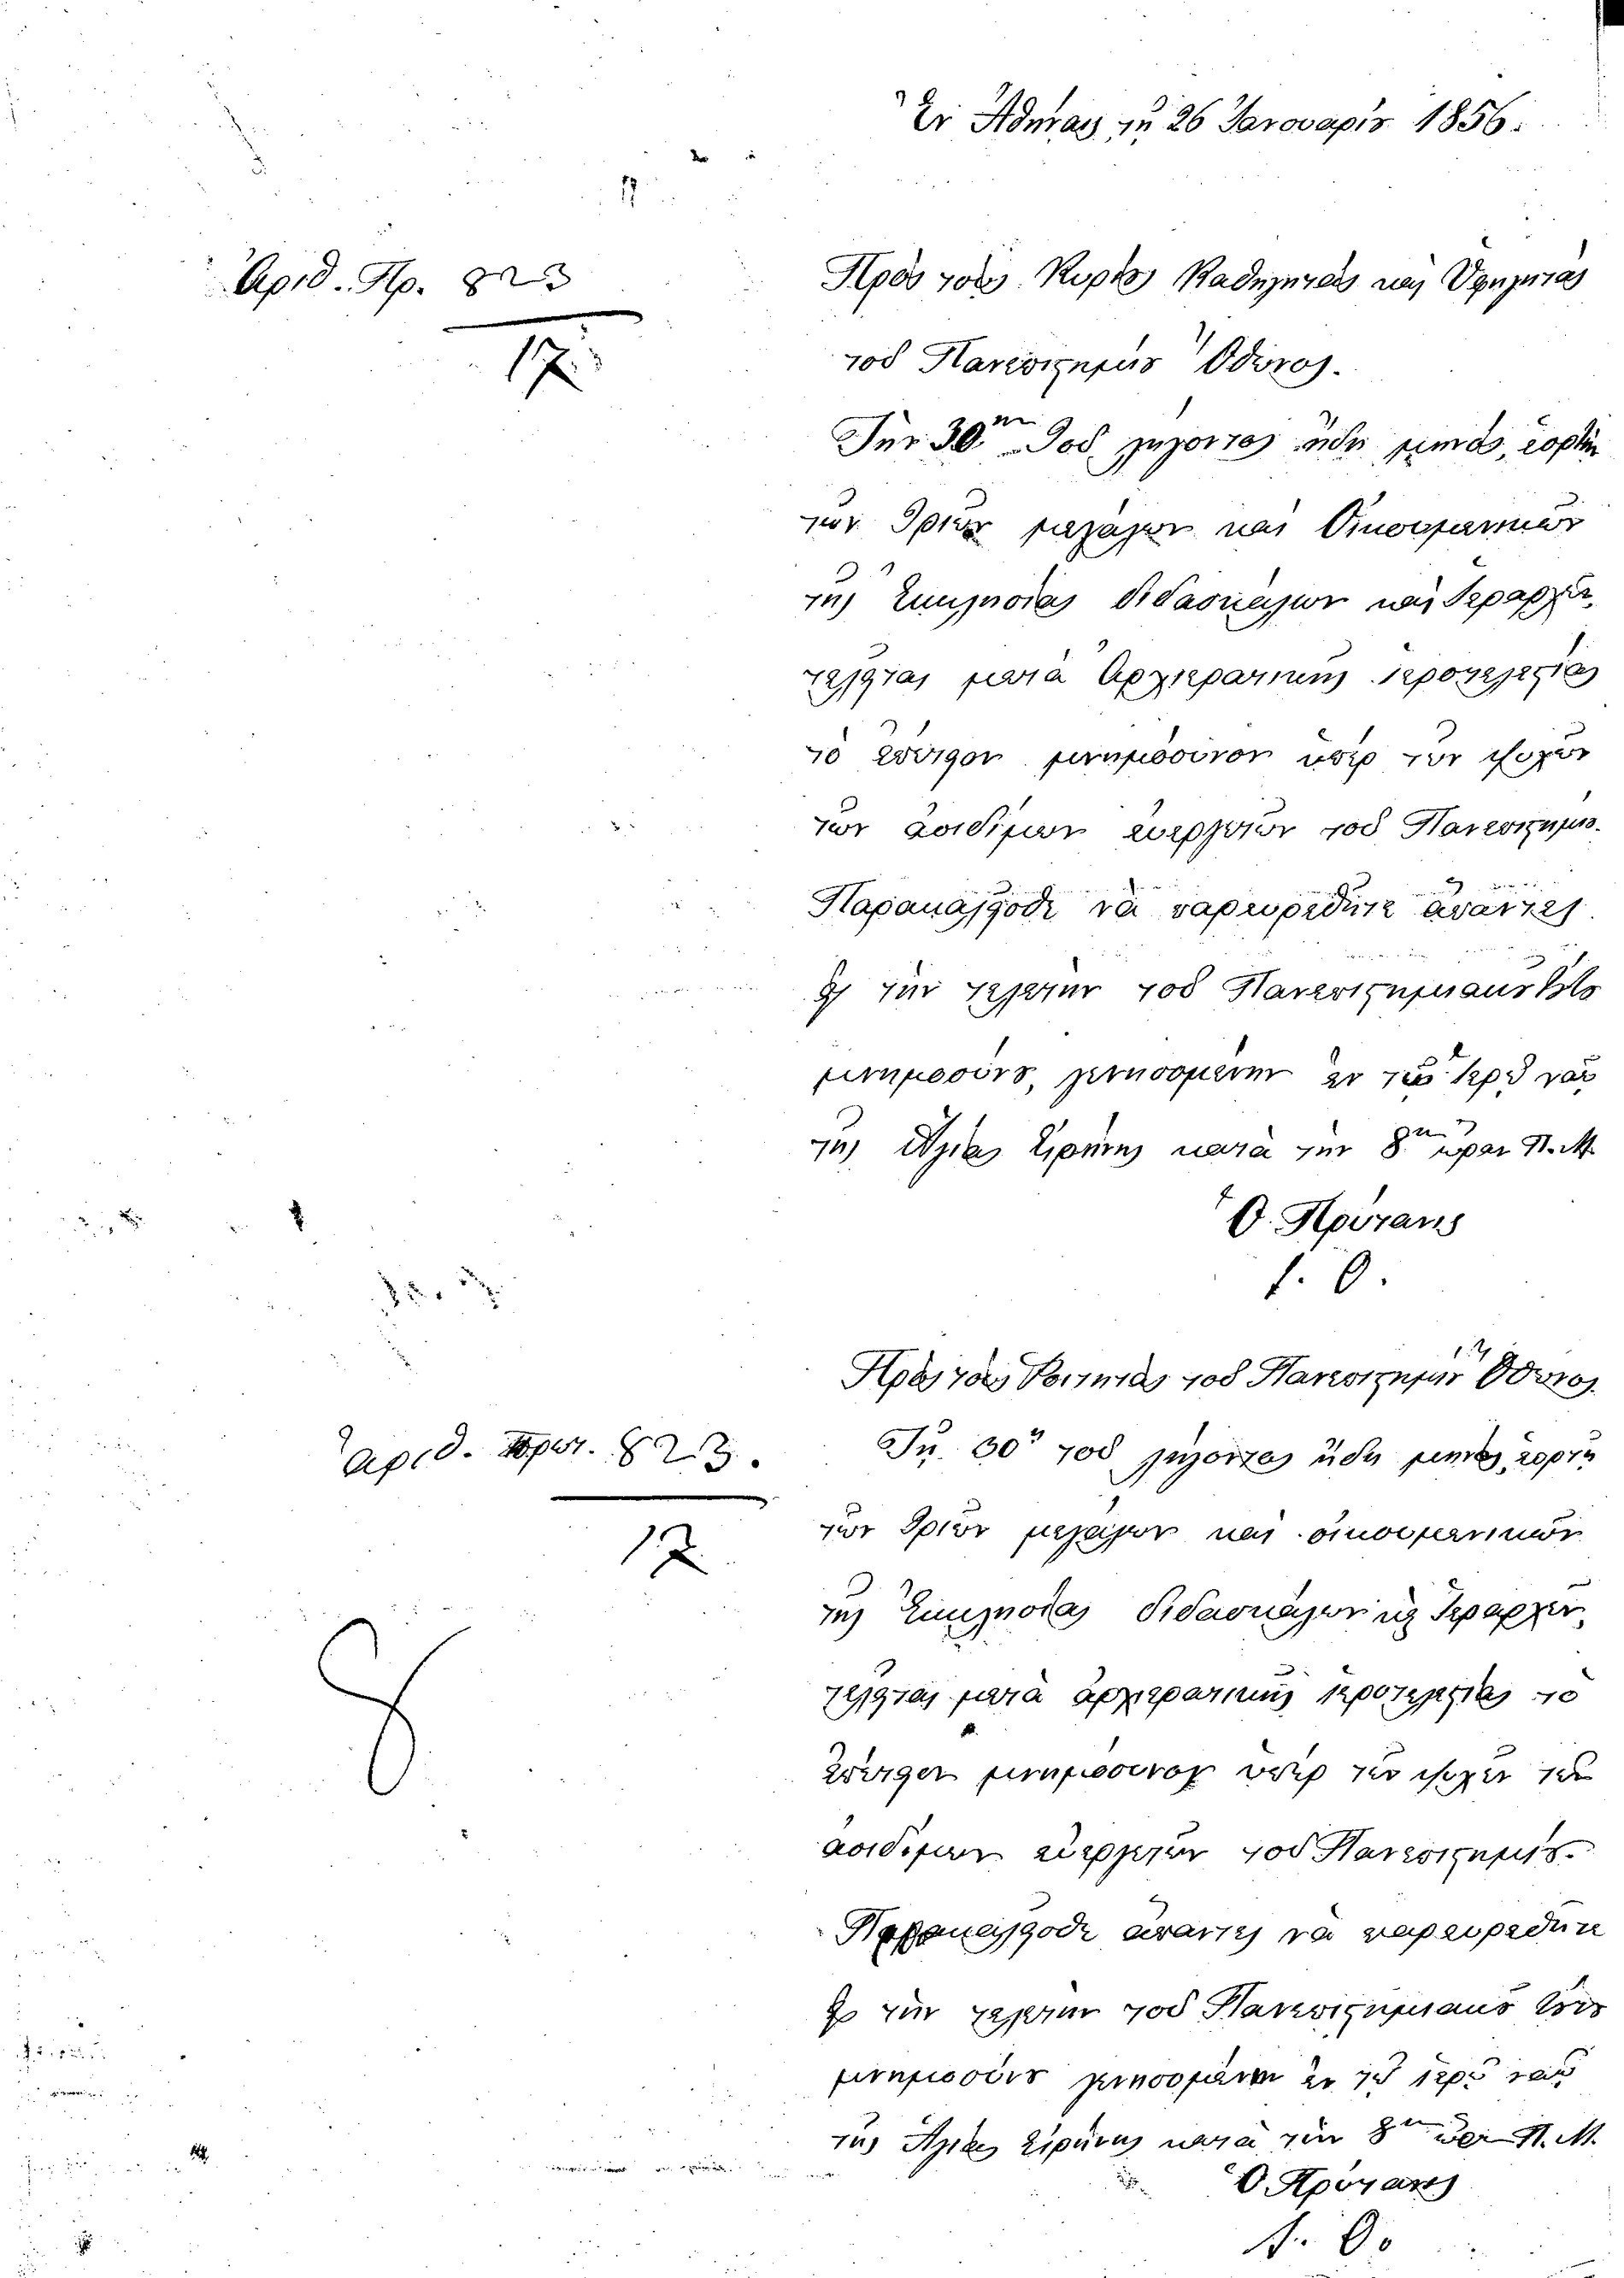 Ἐν Ἀθήναις τῇ 26 Ἰανουαρίου 1856.
Ἀριθ. Πρ. 823
17.
Πρὸς τοὺς Κυρίους Καθηγητὰς καὶ Ὑφηγητὰς
τοῦ Πανεπιστημίου Ὄθωνος.
Τὴν 30ην τοῦ λήγοντος ἤδη μηνὸς, ἑορτὴν
τῶν τριῶν μεγάλων καὶ Οἰκουμενικῶν
τῆς Ἐκκλησίας διδασκάλων καὶ Ἱεραρχῶν,
τελεῖται μετὰ Ἀρχιερατικῆς ἱεροτελεστίας
τὸ ἐτήσιον μνημόσυνον ὑπὲρ τῶν ψυχῶν
τῶν ἀοιδίμων εὐεργετῶν τοῦ Πανεπιστημίου.
Παρακαλεῖσθε νὰ παρευρεθῆτε ἅπαντες
εἰς τὴν τελετὴν τοῦ Πανεπιστημιακοῦ
μνημοσύνου, γενησομένην ἐν τῷ ἱερῷ ναῷ
τῆς Ἁγίας Εἰρήνης κατὰ τὴν 8ην ὥραν Π.Μ.
Ὁ Πρύτανις
Πρὸς τοὺς Φοιτητὰς τοῦ Πανεπιστημίου Ὄθωνος.
Ἀριθ. Πρωτ. 823.
17
Τῇ 30ῃ τοῦ λήγοντος ἤδη μηνὸς, ἑορτῇ
τῶν τριῶν μεγάλων καὶ οἰκουμενικῶν
τῆς Ἐκκλησίας διδασκάλων καὶ Ἱεραρχῶν,
τελεῖται μετὰ ἀρχιερατικῆς ἱεροτελεστίας τὸ
ἐτήσιον μνημόσυνον ὑπὲρ τῶν ψυχῶν τῶν
ἀοιδίμων εὐεργετῶν τοῦ Πανεπιστημίου.
Παρακαλεῖσθε ἅπαντες νὰ παρευρεθῆτε
εἰς τὴν τελετὴν τοῦ Πανεπιστημιακοῦ
μνημοσύνου γενησομένην ἐν τῷ ἱερῷ ναῷ
τῆς Ἁγίας Εἰρήνης κατὰ τὴν 8ην ὥραν Π.Μ.
Ὁ Πρύτανις